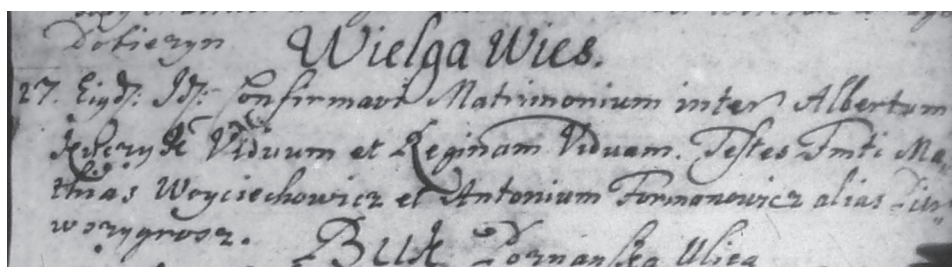 Dobieżyn Wielga Wies.
27. Eiusd: Id: Confirmavi Matrimonium inter Albertum
Viduum et Reginam Viduam. Testes Fmti Ma
thias Woyciechowicz et Antonium Formanowicz alias
wszygrosz.
Buk Poznanska Ulica